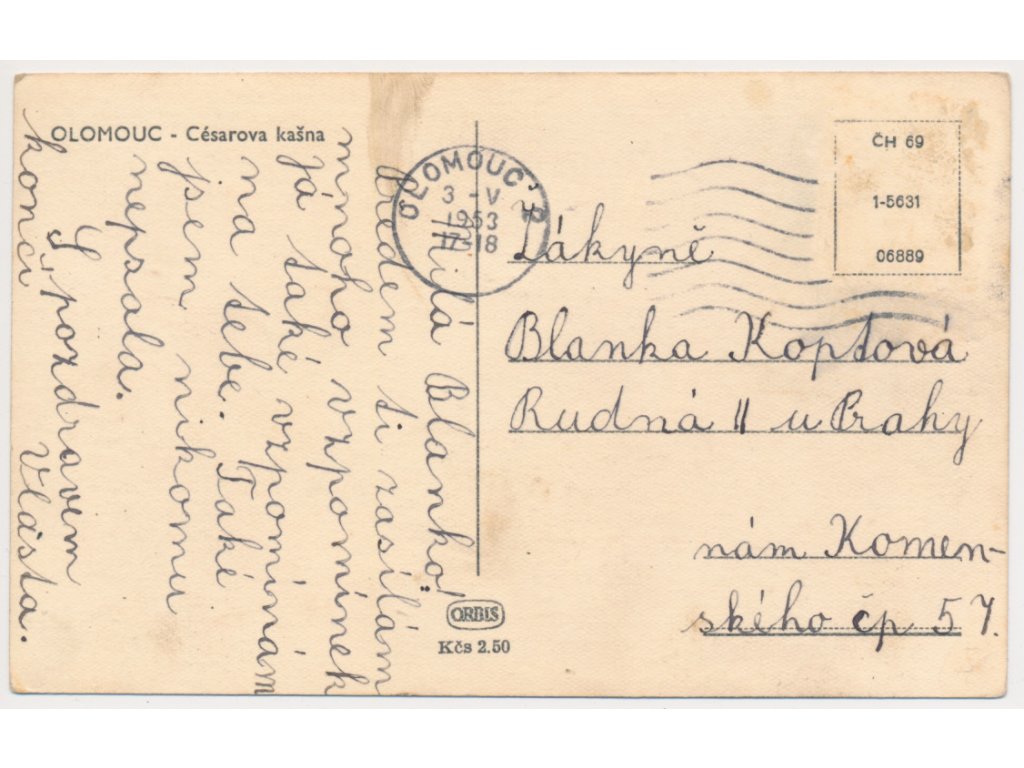 OLOMOUC - Césarova kašna
Milá Blanko!
Vedem ti zasílám
mnoho vzpomínek
já také vzpomínám
na tebe. Také
jsem nikomu
nepsala.
S pozdravem
končí Vlásta.
OLOMOUC
3 -V
1953
17-18
ČH 69
1-5631
06889
Žákyně
Blanka Koptová
Rudná II u Prahy
nám Komen-
ského čp 57.
ORBIS
Kčs 2.50